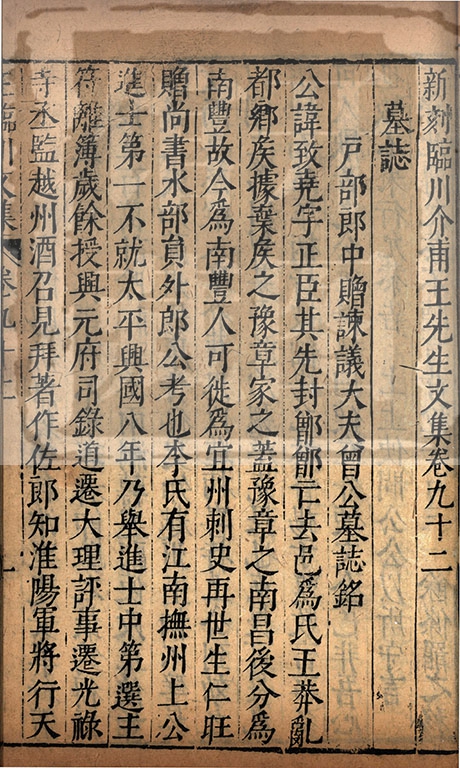 新刻臨川介甫王先生文集卷九十二
墓誌
戶部郎中贈諫議大夫曾公墓誌銘
公諱致堯字正臣其先封鄫鄫亡去邑爲氏王莽亂
都鄉矦據棄矦之豫章家之蓋豫章之南昌後分爲
南豐故今爲南豐人可徙爲宜州刺史再世生仁旺
贈尚書水部負外郎公考也李氏有江南撫州上公
進士第一不就太平興國八年乃舉進士中第選主
符離簿歲餘授興元府司錄道遷大理評事遷光祿
寺丞監越州酒召見拜著作佐郎知淮陽軍將行天
王臨川文集 卷九十二